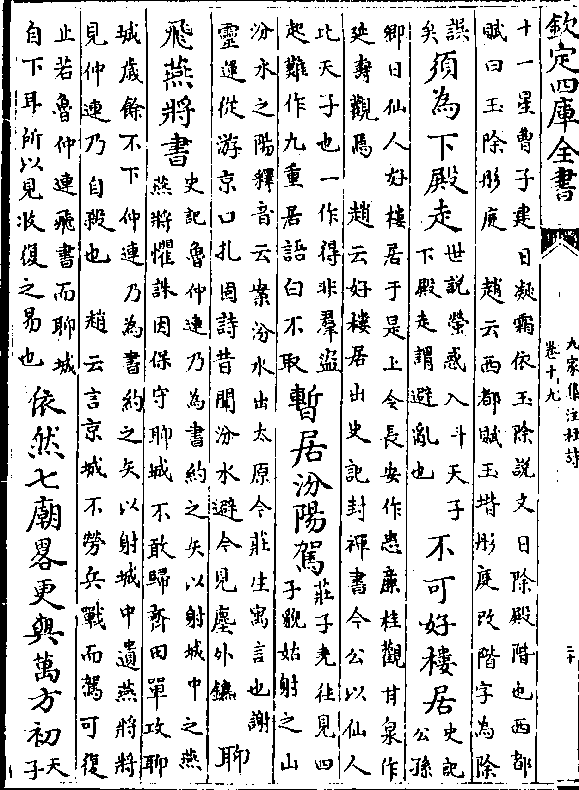 欽定四庫全書
九家集注杜詩
卷十九
十一星曹子建曰凝霜依玉除說文曰除殿階也西都
賦曰玉除彤庭　趙云西都賦玉堦彤庭改階字為除
誤
矣
須為下殿走
世說熒惑入斗天子
下殿走謂避亂也
不可好樓居
史記
公孫
卿曰仙人好樓居于是上令長安作蜚廉桂觀甘泉作
延壽觀焉　趙云好樓居出史記封禪書今公以仙人
比天子也一作得非羣盜
起難作九重居語白不取
暫居汾陽駕
莊子堯往見四
子藐姑射之山
汾水之陽釋音云案汾水出太原今莊生寓言也謝
靈運從游京口扎固詩昔聞汾水避今見塵外鑣
聊
飛燕將書
史記魯仲連乃為書約之矢以射城中之燕
燕將懼誅因保守聊城不敢歸齊田單攻聊
城歲餘不下仲連乃為書約之矢以射城中遺燕將將
見仲連乃自殺也　趙云言京城不勞兵戰而駕可復
止若魯仲連飛書而聊城
自下耳所以見收復之易也
依然七廟畧更與萬方初
天
子